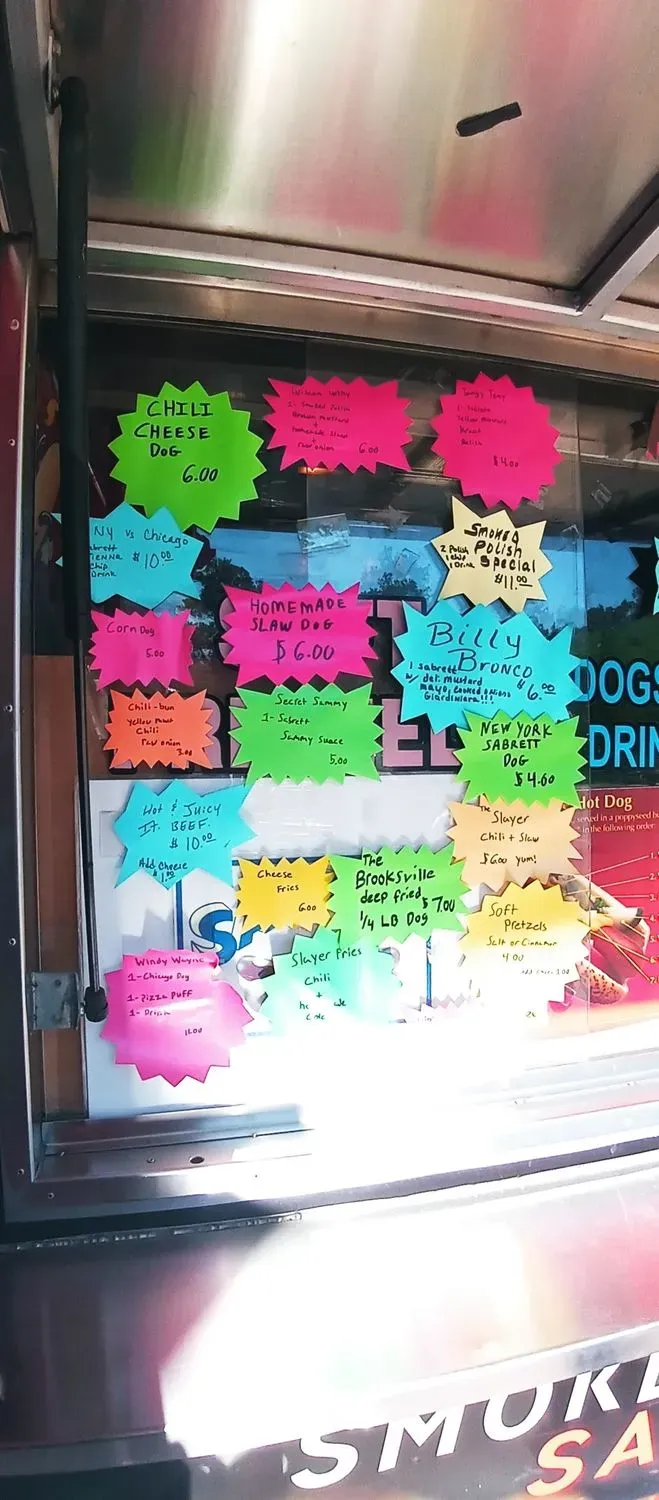 CHILI
CHEESE
DOG
6.00
1- Smoked Polish
Brown mustard
+
homemade slaw
+
raw onion 6.00
Yellow mustard
Kraut
Relish
$4.00
NY vs Chicago
$10.00
Chip
Drink
SMOKED
Polish
Special
2 Polish
1 chip
1 Drink
$11.00
Corn Dog
5.00
HOMEMADE
SLAW DOG
$6.00
Billy
Bronco
1 Sabrett
w/ del. mustard
mayo, cooked onions
Giardiniara!!!
$6.00
Chili-bun
Yellow must
Chili
raw onion
3.00
Secret Sammy
1- Sabrett
Sammy Sauce
5.00
NEW YORK
SABRETT
DOG
$4.00
DOGS
DRIN
Hot & Juicy
IT. BEEF.
$10.00
Add Cheese
$1.00
The
Slayer
Chili + Slaw
$6.00 yum!
Hot Dog
served in a poppyseed bu
in the following order:
Cheese
Fries
6.00
The
Brooksville
deep fried
1/4 LB Dog
$7.00
Soft
Pretzels
Salt or Cinnamon
4.00
Windy Wayne
1-Chicago Dog
1-Pizza PUFF
1- Drink
11.00
Slayer Fries
Chili
+
SMOKE
SA